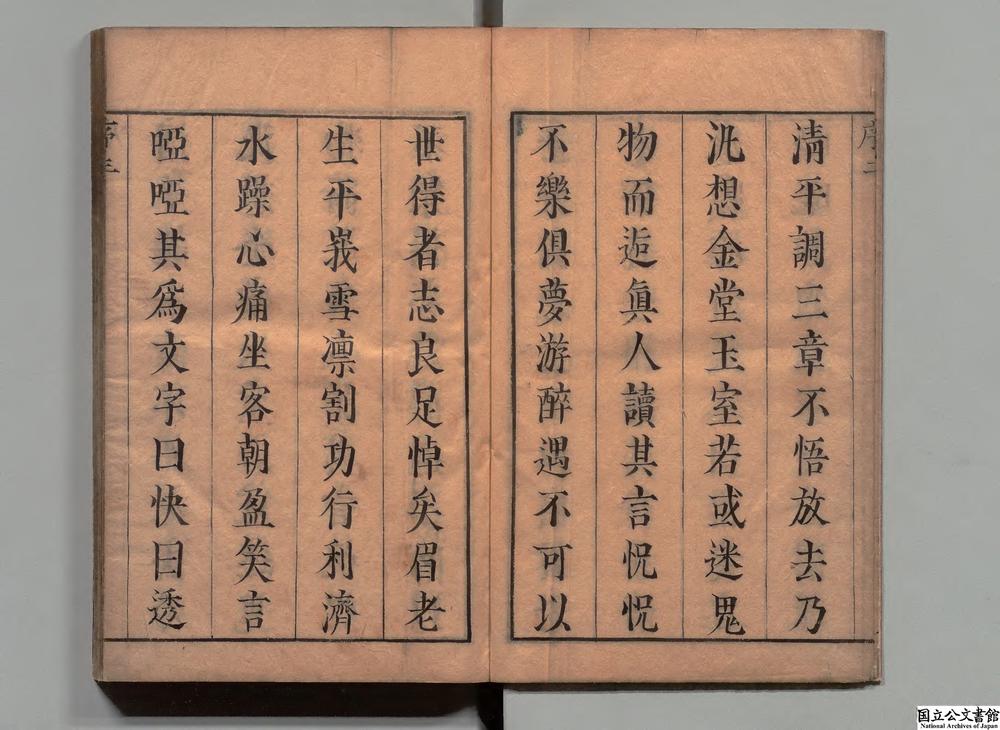 清平調三章不悟放去乃
沘想金堂玉室若或迷鬼
物而逅眞人讀其言怳怳
不樂俱夢游醉遇不可以
世得者志良足悼矣眉老
生平峩雪凛割功行利濟
水躁心痛坐客朝盈笑言
啞啞其爲文字曰快曰透
国立公文書館
National Archives of Japan